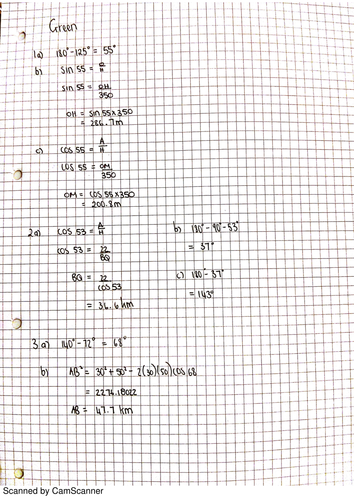 Green
1a) 180° - 125° = 55°
b) sin 55 = O/H
sin 55 = OH/350
OH = sin 55 x 350
= 286.7m
c) cos 55 = A/H
cos 55 = OM/350
OM = cos 55 x 350
= 200.8m
2a) cos 53 = A/H
cos 53 = 22/BQ
BQ = 22/cos 53
= 36.6 km
b) 180° - 90° - 53°
= 37°
c) 180° - 37°
= 143°
3a) 140° - 72° = 68°
b) AB² = 30² + 50² - 2(30)(50)cos 68
= 2276.18022
AB = 47.7 km
Scanned by CamScanner